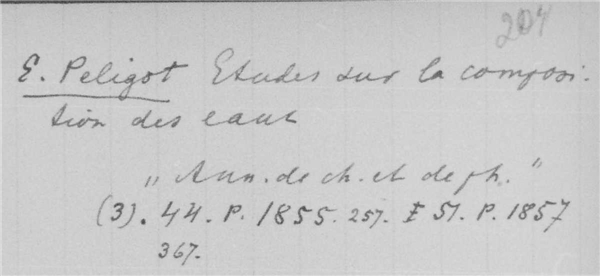 204
E. Peligot Etudes sur la composi-
tion des eaux
„Ann. de ch. et de ph."
(3). 44. P. 1855. 257. I 51. P. 1857
367.